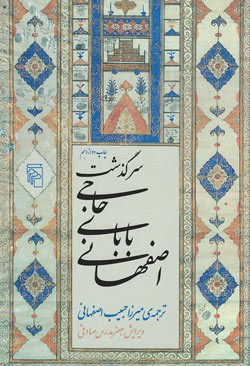 چاپ دوازدهم
سرگذشت
حاجی
بابای
اصفهانی
ترجمه‌ی میرزا حبیب اصفهانی
ویرایش جعفر مدرس صادقی